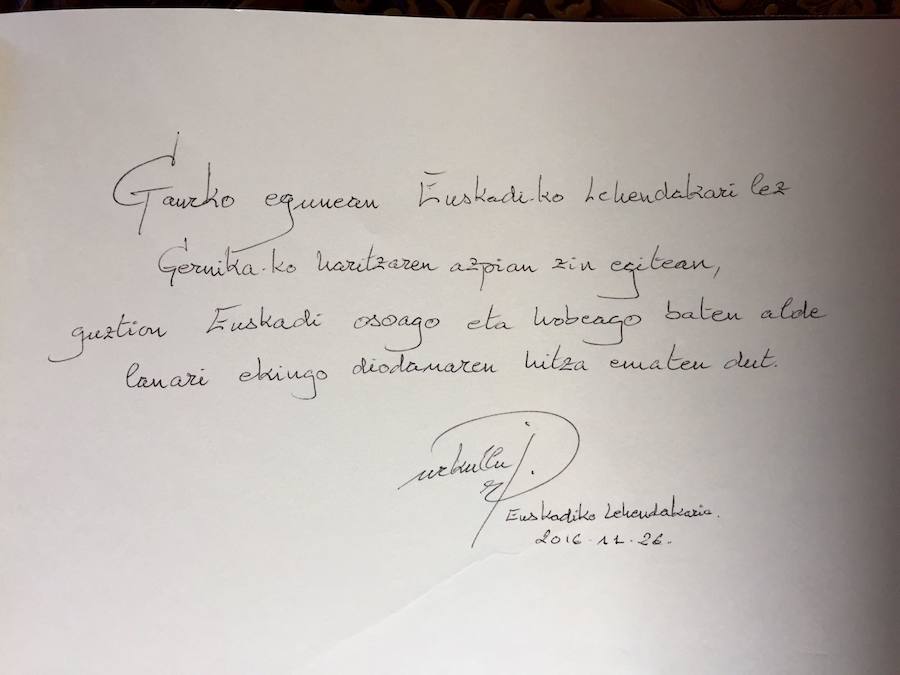 Gaurko egunean Euskadi-ko Lehendakari lez
Gernika-ko haritzaren azpian zin egitean,
guztion Euskadi osoago eta hobeago baten alde
lanari ekingo diodanaren hitza ematen dut.
urkullu
Euskadiko Lehendakaria.
2016.11.26.